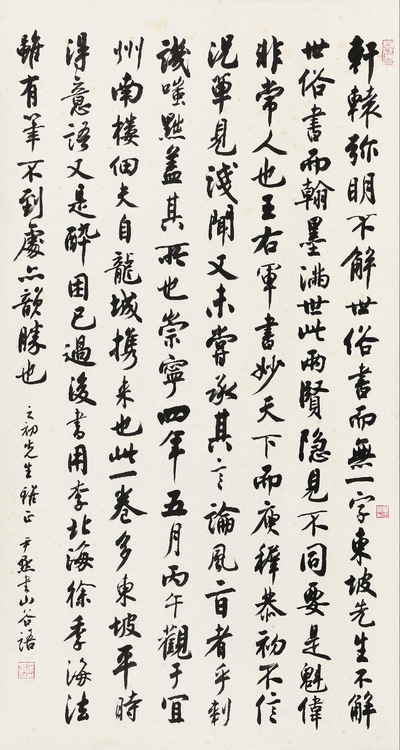 軒轅弥明不解世俗書而無一字東坡先生不解
世俗書而翰墨滿世此兩賢隐見不同要是魁偉
非常人也王右軍書妙天下而庾穉恭初不信
况單見淺聞又未嘗承其言論風旨者乎刺
譏嗤點蓋其所也崇寧四年五月丙午觀于宜
州南樓佃夫自龍城攜来也此一卷多東坡平時
得意語又是醉困已過後書用李北海徐季海法
雖有筆不到處亦韻勝也
之初先生雅正 尹默書山谷語